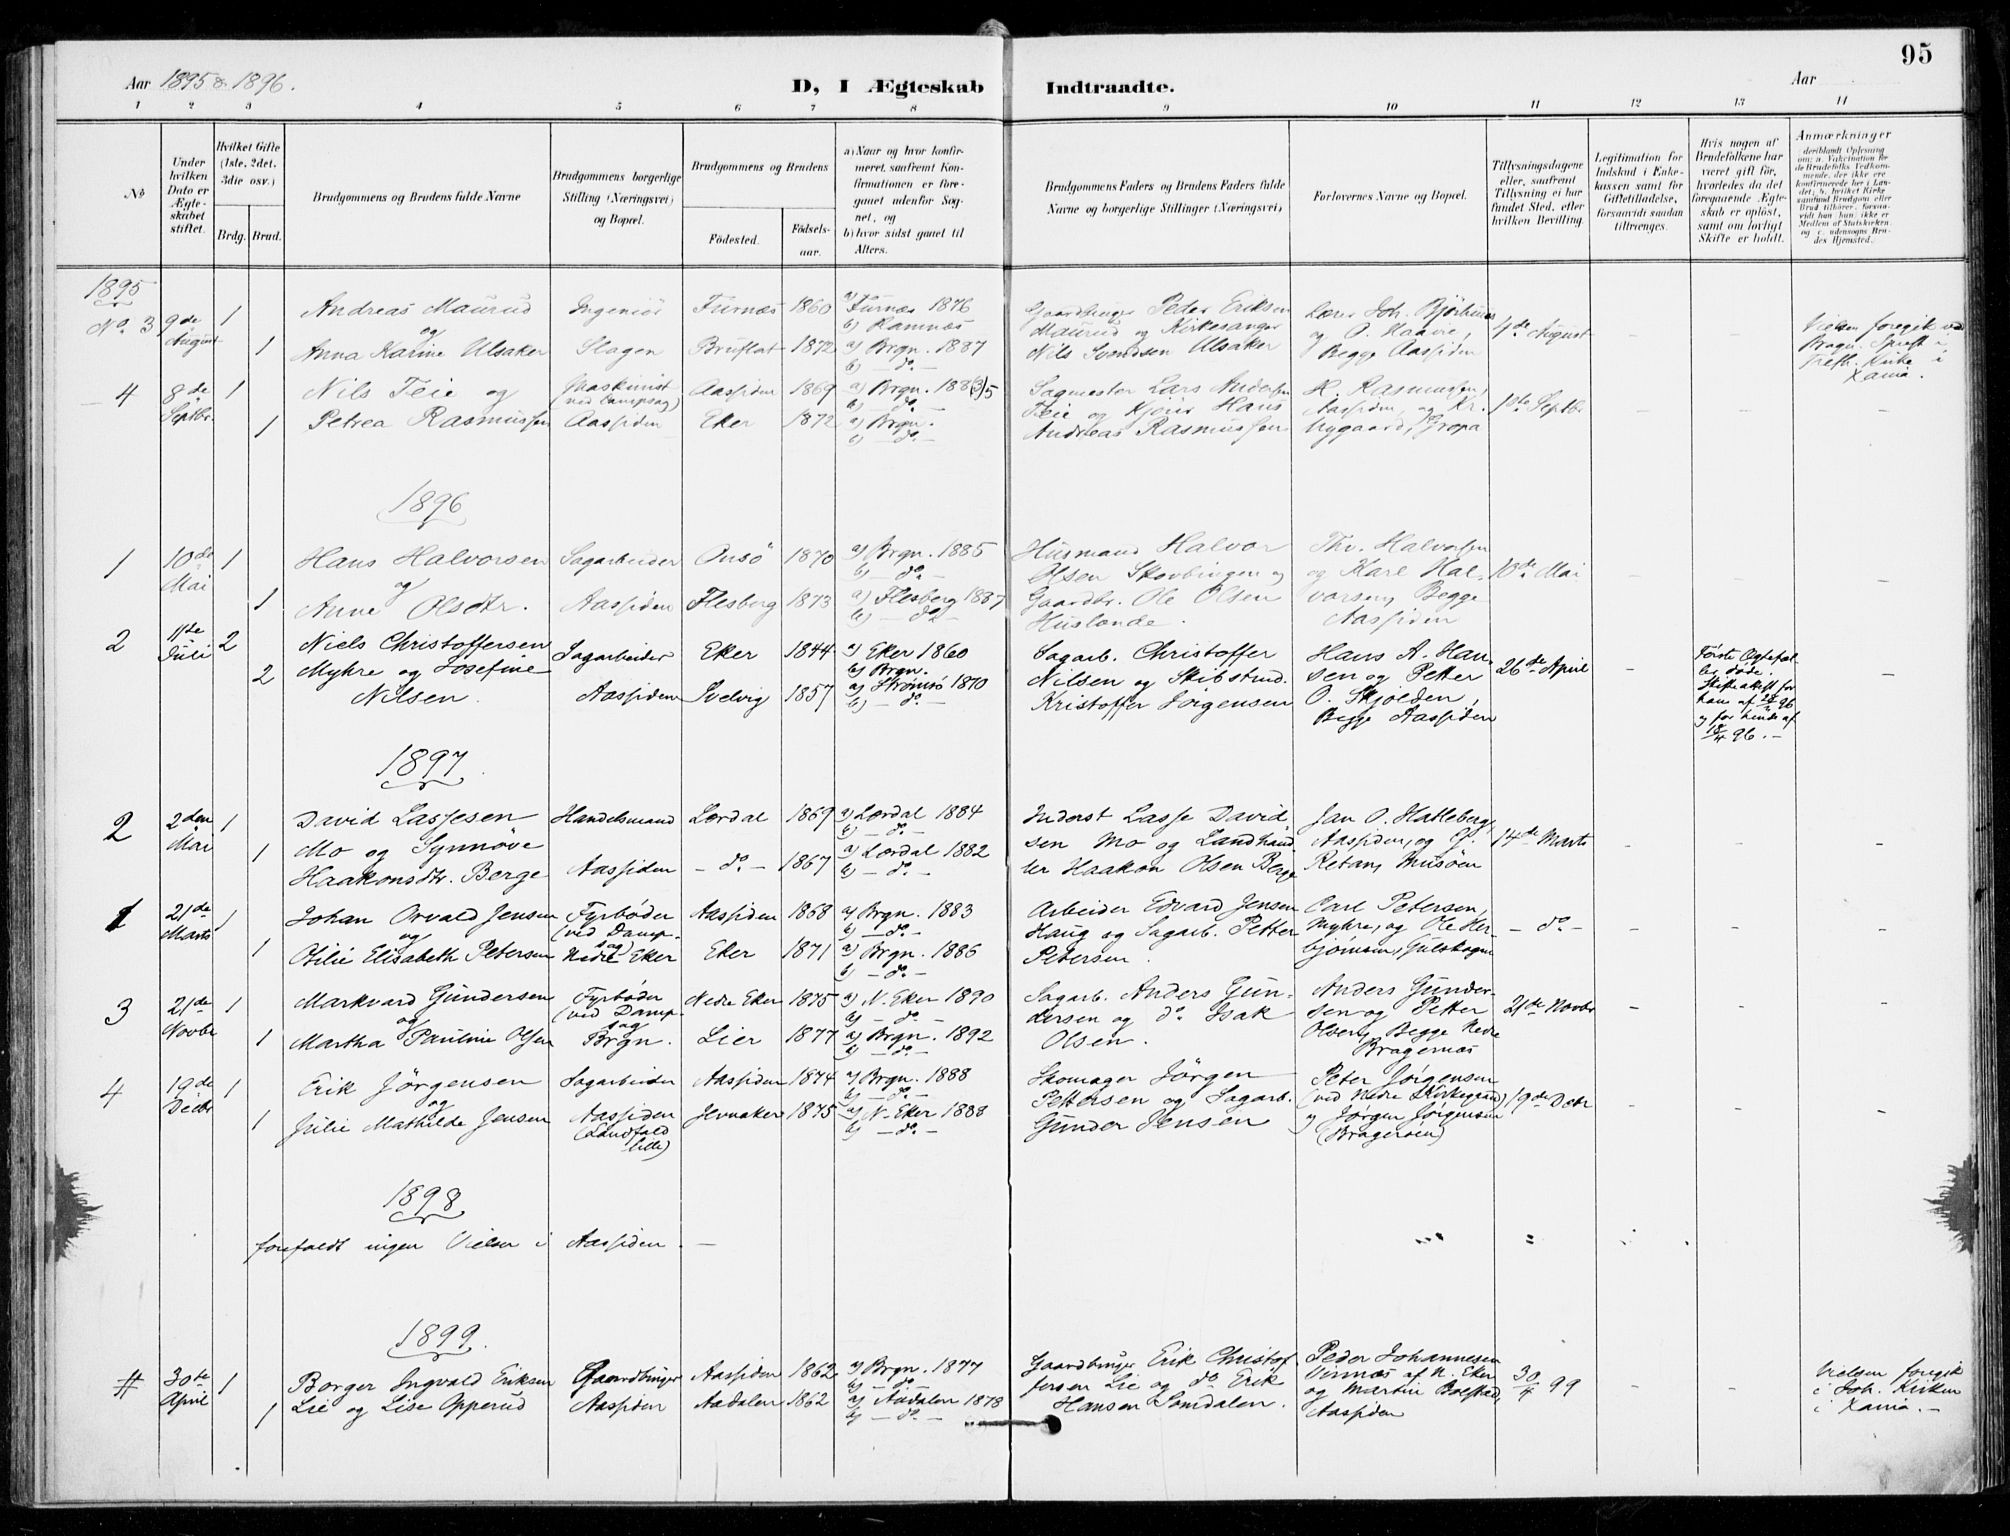 95
Aar 1895 & 1896.
D, I Ægteskab Indtraadte.
Aar
1 2 3 4 5 6 7 8 9 10 11 12 13 14
No
Under hvilken Dato er Ægteskabet stiftet.
Hvilket Gifte (1ste, 2det, 3die osv.)
Brdg. Brud.
Brudgommens og Brudens fulde Navne
Brudgommens borgerlige Stilling (Næringsvei) og Bopæl.
Brudgommens og Brudens
Födested. Födselsaar.
a) Naar og hvor konfirmeret, saafremt Konfirmationen er foregaaet udenfor Sognet, og
b) hvor sidst gaaet til Alters.
Brudgommens Faders og Brudens Faders fulde Navne og borgerlige Stillinger (Næringsvei)
Forlovernes Navne og Bopæl.
Tillysningsdagene eller, saafremt Tillysning ei har fundet Sted, efter hvilken Bevilling.
Legitimation for Indskud i Enkekassen samt for Giftetilladelse, forsaavidt saadan tiltrænges.
Hvis nogen af Brudefolkene har været gift för, hvorledes da det foregaaende Ægteskab er oplöst, samt om lovligt Skifte er holdt.
Anmærkninger
1895
No. 3 9de August 1
Andreas Maurud Ingeniör Furnæs 1860 a) Furnæs 1876
og b) Ramnæs
1 Anna Karine Ulsaker Slagen Bruflat 1872 a) Brgn. 1887
b) - do. -
Gaardbruger Peder Eriksen
Maurud og Kirkesanger
Nils Svendsen Ulsaker
Lærer Joh. Björhuus
og O. Haavie,
Begge Aassiden
4de August - -
Vielsen foregik ved
Bragn. Sprest i
Trefh. Kirke i
Xania.
4 8de Septbr. 1
Nils Teie og Maskinist Aassiden 1869 a) Brgn. 1885
(ved Dampsag) b) - do. -
1 Petrea Rasmussen Aassiden Eker 1872 a) Brgn.
b) - do. -
Sagmester Lars Andersen
Teie og Kjörer Hans
Andreas Rasmussen
H. Rasmussen,
Aassiden, og Kr.
Nygaard, Gropa
1ste Septbr. - - -
1896
1 10de Mai 1
Hans Halvorsen Sagarbeider Onsö 1870 a) Brgn. 1885
og b) - do. -
1 Anne Olsdtr. Aassiden Flesberg 1873 a) Flesberg 1887
b) - do. -
Husmand Halvor
Olsen Skovbingen og
Gaardbr. Ole Olsen
Huslænde.
Thv. Halvorsen
og Karl Hal-
vorsen, Begge
Aassiden
10de Mai - -
2 11te Juli 2
Niels Christoffersen Sagarbeider Eker 1844 a) Eker 1860
b) Brgn.
2 Myhre og Josefine
Nilsen. Aassiden Svelvig 1857 a) Strømsö 1870
b) - do. -
Sagarb. Christoffer
Nilsen og Skibstmd.
Kristoffer Jörgensen
Hans A. Han-
sen og Petter
O. Skjolden,
Begge Aassiden
26de April -
Første Ægtefæl-
ler døde.
Skifteattest for
ham af 96
og for hende af
96. -
1897
2 2den Mai 1
David Lassesen Handelsmand Lærdal 1869 a) Lærdal 1884
b) - do. -
1 Mo og Synnöve
Haakonsdtr. Berge Aassiden - do. - 1867 a) Lærdal 1882
b) - do. -
Inderst Lasse David-
sen Mo og Landhand-
ler Haakon Olsen Berge
Jan O. Hatleberg,
Aassiden, og
Retan, Musöen
14de Marts - - -
1 21de Marts 1
Johan Orvald Jensen Fyrbøder Aassiden 1868 a) Brgn. 1883
og (ved Damp- b) - do. -
sag)
1 Otilie Elisabeth Petersen Nedre Eker Eker 1871 a) Brgn. 1886
b) - do. -
Arbeider Edvard Jensen
Haug og Sagarb. Petter
Petersen.
Carl Petersen,
Myhre, og Ole Her-
bjørnsen, Gulskogen
- do. - - - -
3 21de Novbr 1
Markvard Gundersen Fyrbøder Nedre Eker 1875 a) N. Eker 1890
og (ved Damp- b) - do. -
sag)
1 Martha Pauline Olsen Brgn. Lier 1877 a) Brgn. 1892
b) - do. -
Sagarb. Anders Gun-
dersen og do. Isak
Olsen.
Anders Gunder-
sen og Petter
Olsen, Begge Nedre
Bragernæs
21de Novbr - - -
4 19de Decbr 1
Erik Jörgensen Sagarbeider Aassiden 1874 a) Brgn. 1888
og b) - do. -
1 Julie Mathilde Jensen Aassiden Jevnaker 1875 a) N. Eker 1888
(Landfald b) - do. -
lille)
Skomager Jörgen
Pettersen og Sagarb.
Gunder Jensen
Peter Jörgensen
(ved Nedre Kirkegaard)
og Jørgen Jørgensen
(Bragerøen)
19de Decbr - - -
1898
forefaldt ingen Vielser i Aassiden. -
1899.
# 30te April 1
Borger Ingvald Eriksen Gaardbruger Aassiden 1862 a) Brgn. 1877
b) - do. -
1 Lie og Lise Opperud Aassiden Aadalen 1862 a) Aadalen 1878
b) - do. -
Gaardbruger Erik Christof-
fersen Lie og do. Erik
Hansen Somdalen.
Peder Johannesen
Vinnæs af N. Eker
og Martin Bolstad,
Aassiden
30/4 99 - -
Vielsen foregik
i Joh. Kirken
i Xania. -